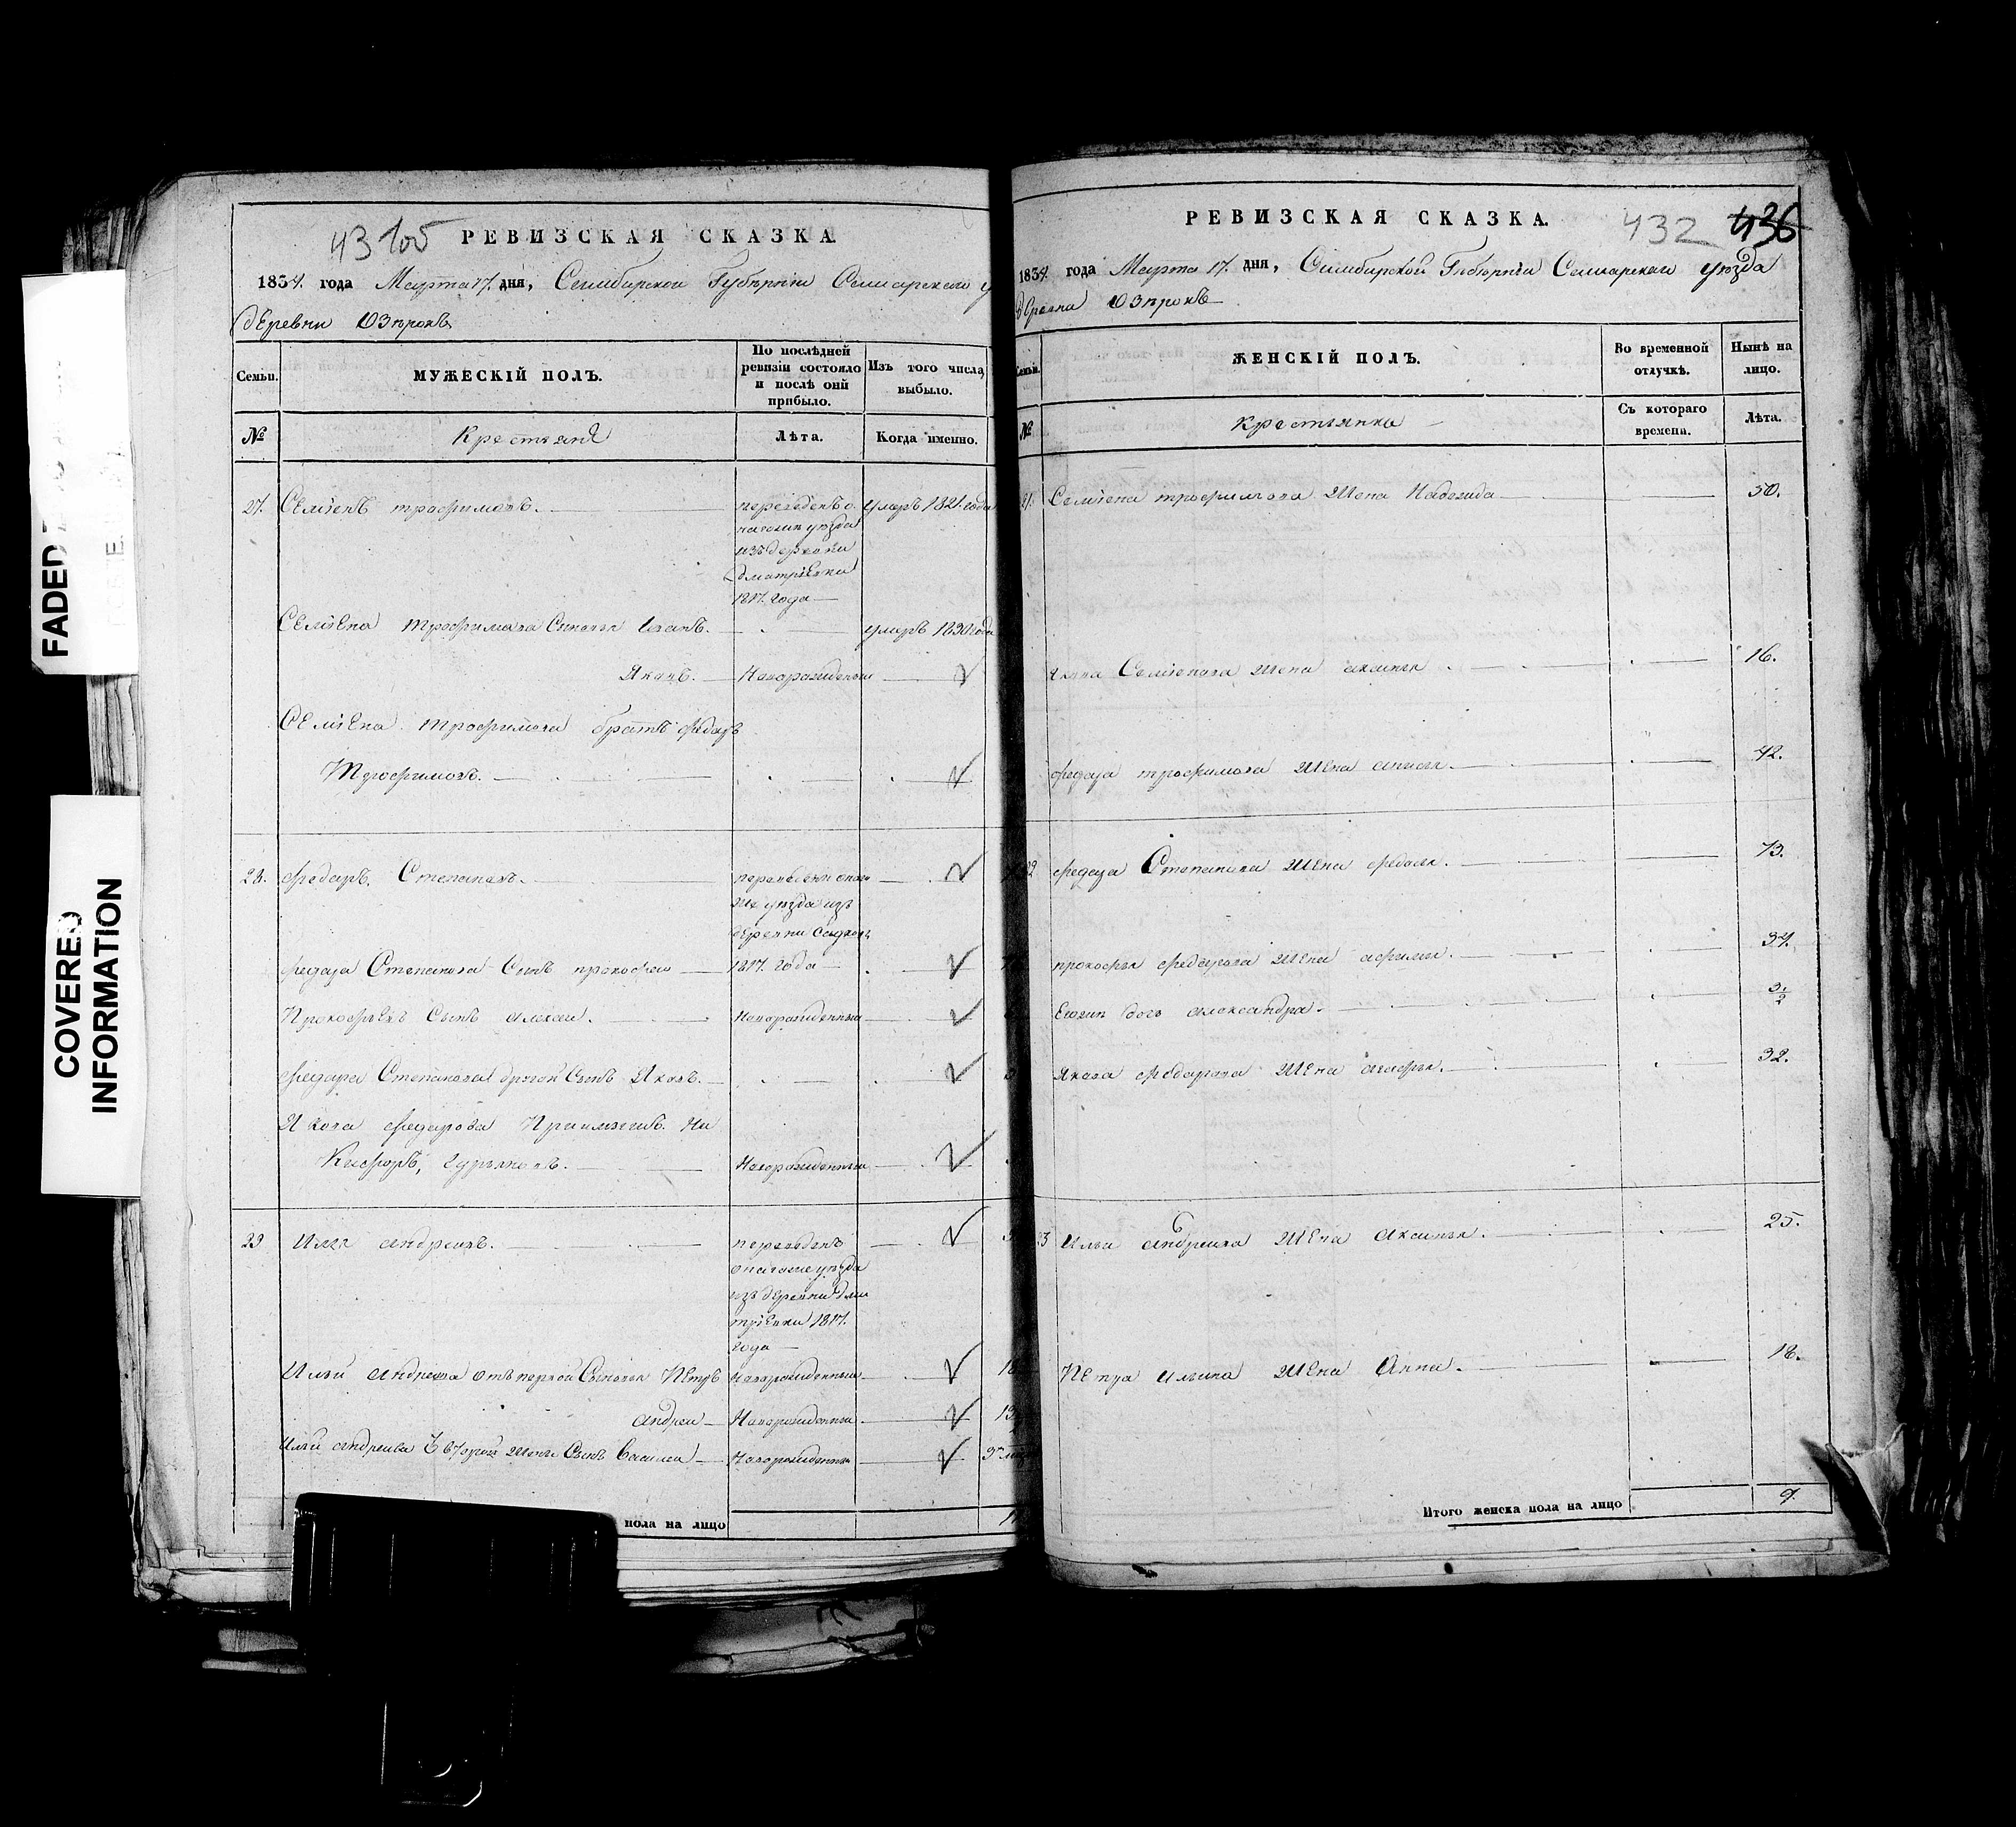 FADED
COVERED
INFORMATION
43 105
РЕВИЗСКАЯ СКАЗКА
1834. года Марта 17. дня, Симбирской Губерніи Самарскаго у
деревни Озѣрокъ
Семьи.
МУЖЕСКІЙ ПОЛЪ.
По послѣдней
ревизіи состояло
и послѣ оній
прибыло.
Изъ того числа
выбыло.
№
Крестьяне
Лѣта.
Когда именно.
27. Семіенъ трофимовъ. переведенъ о умеръ 1821. года
уѣзда
изъ деревни
Дматріевки
1817. года
Семіена трофимова Сыновья Иванъ. умеръ 1830 года
Яковъ. Новорожденны
Семіена трофимова братъ федоръ
Трофимовъ.
28. федоръ Степановъ.
уѣзда изъ
деревни
федора Степанова Сынъ прокофеи 1817. года
Прокофьевъ Сынъ алексеи. Новорожденны
федора Степанова другой Сынъ Яковъ.
Якова федорова Ни
кифоръ, Новорожденны
29 Илья андреевъ. переведенъ
уѣзда
изъ деревни дми
тріевки 1817.
года
Ильи андреева отъ первой Сыновья Петръ новорожденны
андреи Новорожденны 13
Ильи андреева Сынъ василеи Новорожденны
пола на лицо
РЕВИЗСКАЯ СКАЗКА.
432 436
1834. года Марта 17. дня, Симбирской Губерніи Самарскаго уѣзда
деревни Озѣрокъ
Семьи.
ЖЕНСКІЙ ПОЛЪ.
Во временной
отлучкѣ.
Нынѣ на
лицо.
№
Крестьянки
Съ котораго
времени.
Лѣта.
Семіена трофимова жена Надежда 50.
Якова Семіенова жена аксинья 16.
федора трофимова жена анисья. 42.
федора Степанова жена федосья. 73.
прокофья федорова жена афимья. 34.
дочь александра.
Якова федорова жена агафья. 32.
Ильи андреева жена аксинья. 25.
Петра ильина жена Анна. 18.
Итого женска пола на лицо 9.